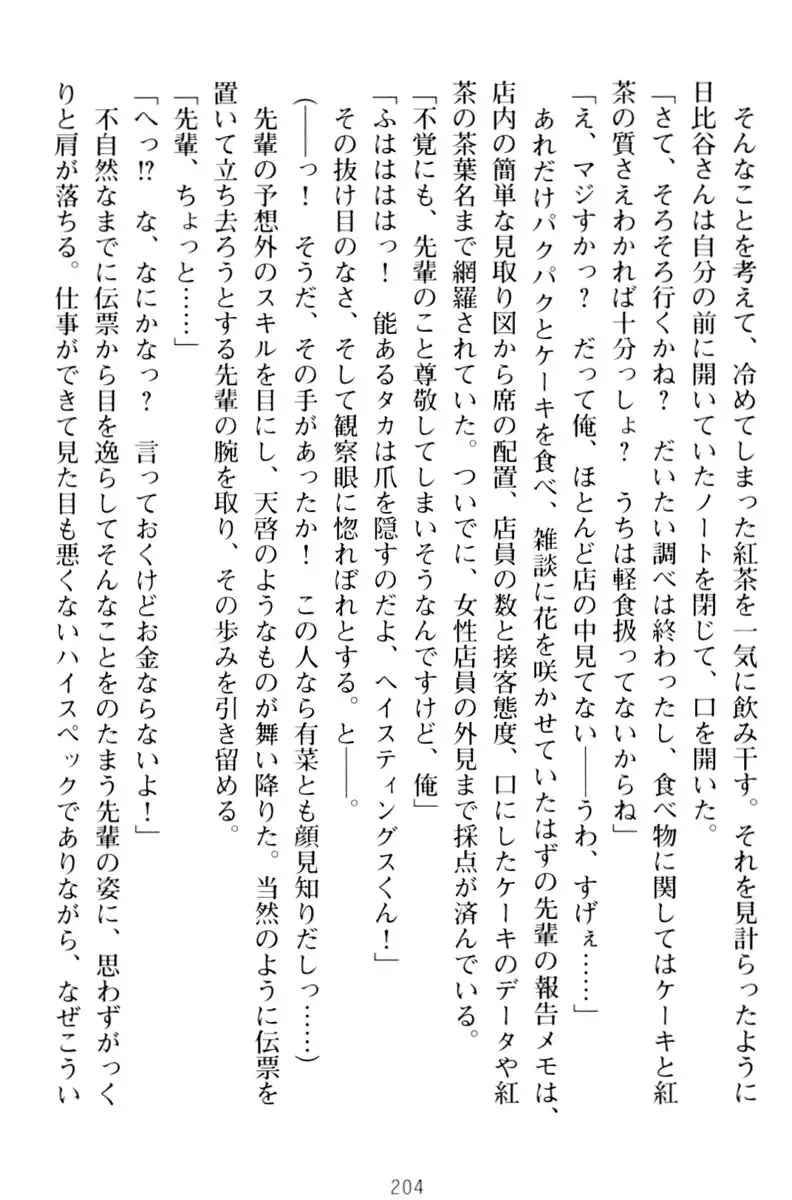 そんなことを考えて、冷めてしまった紅茶を一気に飲み干す。それを見計らったように
日比谷さんは自分の前に開いていたノートを閉じて、口を開いた。
「さて、そろそろ行くかね？　だいたい調べは終わったし、食べ物に関してはケーキと紅
茶の質さえわかれば十分っしょ？　うちは軽食扱ってないからね」
「え、マジすかっ？　だって俺、ほとんど店の中見てない――うわ、すげぇ……」
あれだけパクパクとケーキを食べ、雑談に花を咲かせていたはずの先輩の報告メモは、
店内の簡単な見取り図から席の配置、店員の数と接客態度、口にしたケーキのデータや紅
茶の茶葉名まで網羅されていた。ついでに、女性店員の外見まで採点が済んでいる。
「不覚にも、先輩のこと尊敬してしまいそうなんですけど、俺」
「ふはははははっ！　能あるタカは爪を隠すのだよ、ヘイスティングスくん！」
その抜け目のなさ、そして観察眼に惚れぼれとする。と――。
（――っ！　そうだ、その手があったか！　この人なら有菜とも顔見知りだしっ……）
先輩の予想外のスキルを目にし、天啓のようなものが舞い降りた。当然のように伝票を
置いて立ち去ろうとする先輩の腕を取り、その歩みを引き留める。
「先輩、ちょっと……」
「へっ!?　な、なにかなっ？　言っておくけどお金ならないよ！」
不自然なまでに伝票から目を逸らしてそんなことをのたまう先輩の姿に、思わずがっく
りと肩が落ちる。仕事ができて見た目も悪くないハイスペックでありながら、なぜこうい
204